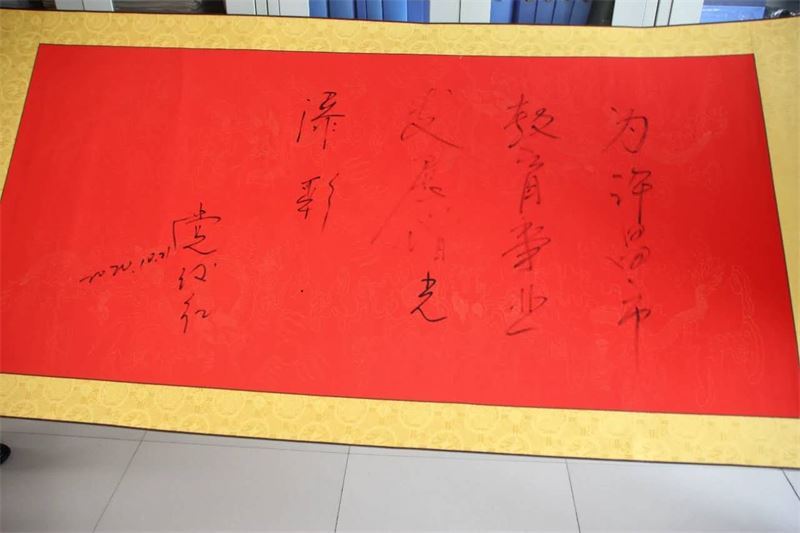 为许昌市
教育事业
发展增光
添彩
党红
2020.10.21